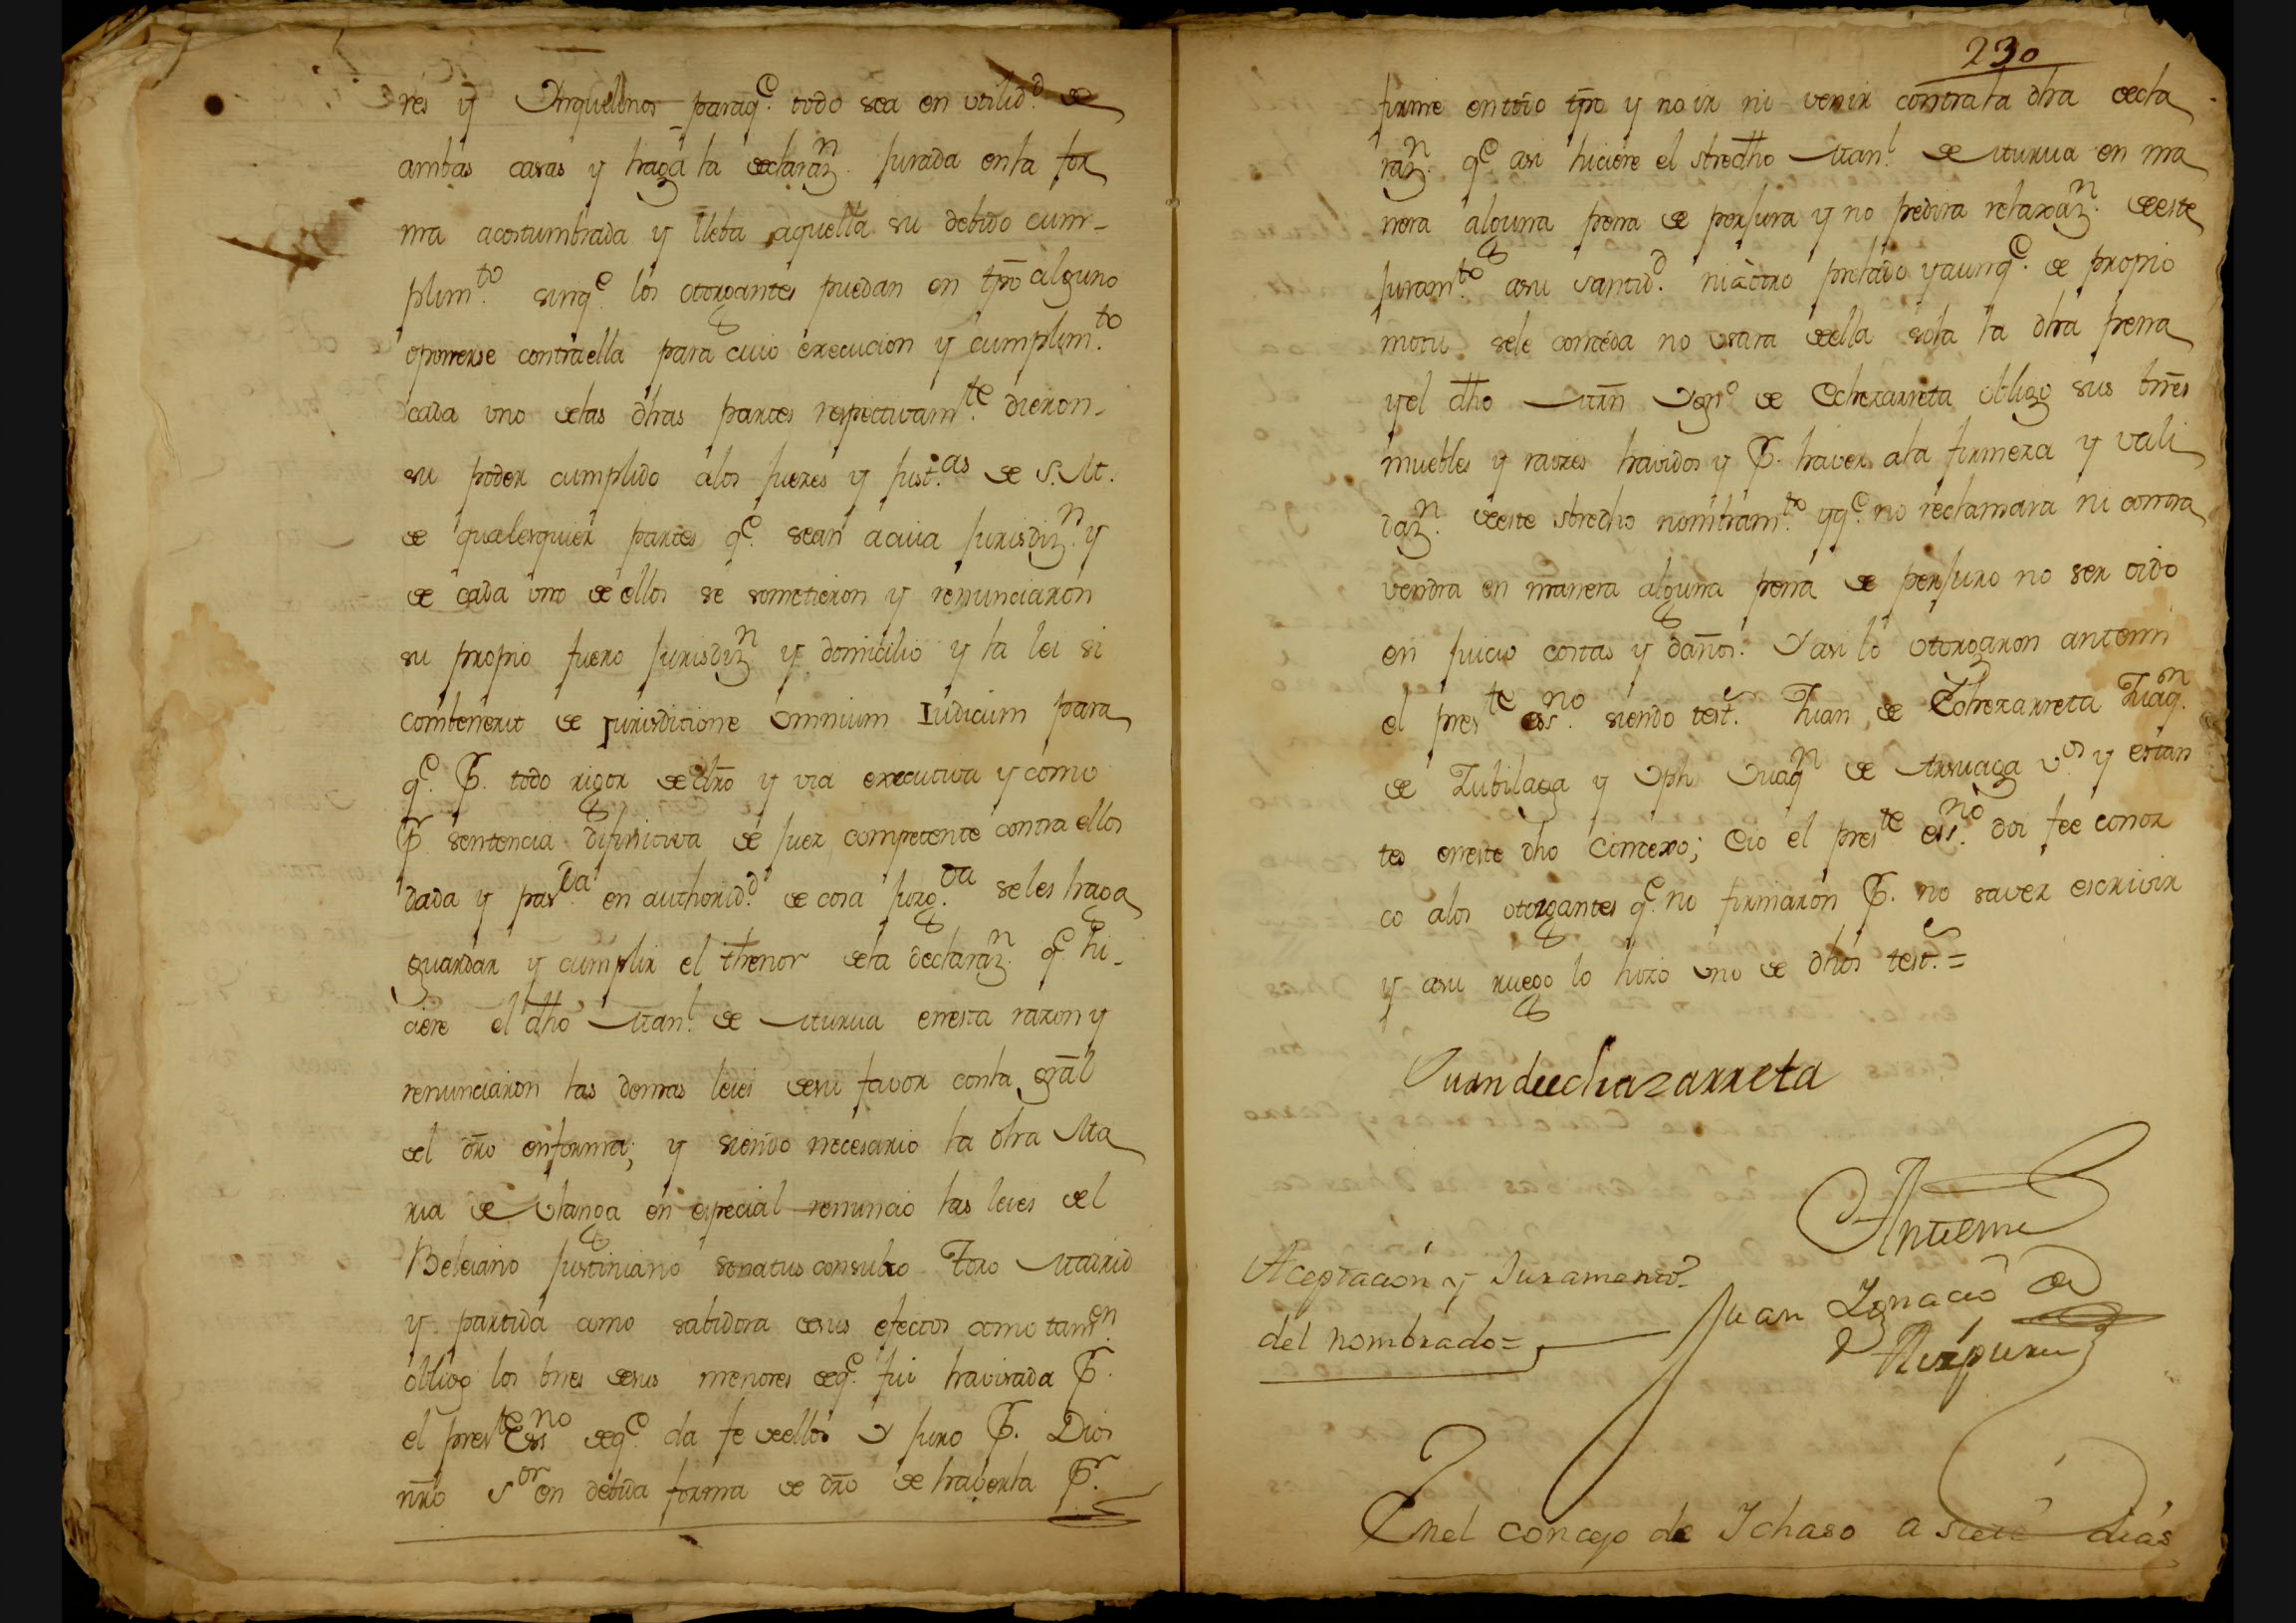 res y Inquilinos paraq.e todo sea en utilid.d de
ambas casas y haga la declaraz.n Jurada en la for
ma acostumbrada y lleba aquella su debido cum-
plim.to sinq.e los otorgantes puedan en tp̄o alguno
oponerse contraella para cuio execucion y cumplim.to
cada uno delas dhas partes respectivam.te dieron-
su poder cumplido alos Jueres y Just.as de S. M.
de qualesquier partes q.e sean acuia Jurisdiz.n y
de cada uno de ellos se sometieron y renunciaron
su propio fuero Jurisdiz.n y domicilio y la lei si
combenerit de Jurisditione omnium Iudicum para
q.e Pr. todo rigor de dr̄o y via executiva y como
Pr. sentencia difinitiva de Juez competente contra ellos
dada y pas.da en authorid.d de cosa Juzg.da seles haga
guardar y cumplir el thenor dela declaraz.n q.e hi-
ciere el dho Man.l de Iturua enesta razon y
renunciaron las demas leies desu favor conla gr̄al
del dr̄o enforma; y siendo necesario la dha Ma
ria de Olanga en especial renuncio las leies del
Beleiano Justiniano senatus consulto Toro Madrid
y partida como sabidora desus efectos como tam.en
obligo los bnes desus menores deq.e fui havisada Pr.
el pres.te Ess.no deq.e da fe deellos Y Juro Pr. Dios
nr̄o S.or en debida forma de dr̄o de haberla Pr.
230
firme entodo tp̄o y no ir ni venir contrala dha decla
raz.n q.e asi hiciere el sbredho Man.l de Iturua en ma
nera alguna pena de perjura y no pedira relaxaz.n deeste
Juram.to asu Santid.d niàotro prelado yaunq.e de propio
motu sele conceda no usara deella sola la dha pena
yel dho Mrn Ygn.o de Echezarreta obligo sus bn̄es
muebles y raices havidos y Pr. haver ala firmeza y vali
daz.n deeste sbredho nombram.to yq.e no reclamara ni contra
vendra en manera alguna pena de perjuro no ser oido
en Juicio costas y daños. Y asi lo otorgaron antemi
el pres.te ess.no siendo test.s Juan de Echezarreta Juaq.n
de Zubilaga y Jph Juaq.n de Arsuaga v.os y estan
tes eneste dho Concexo; Eio el pres.te ess.no doi fee conoz
co alos otorgantes q.e no firmaron Pr. no saver escrivir
y asu ruego lo hizo uno de dhos test.s =
Juan deechazarreta
Antemi
Aceptacion y Juramento
del nombrado=
Juan Ignacio de
Aizpuru
Enel concejo de Ichaso a siete dias